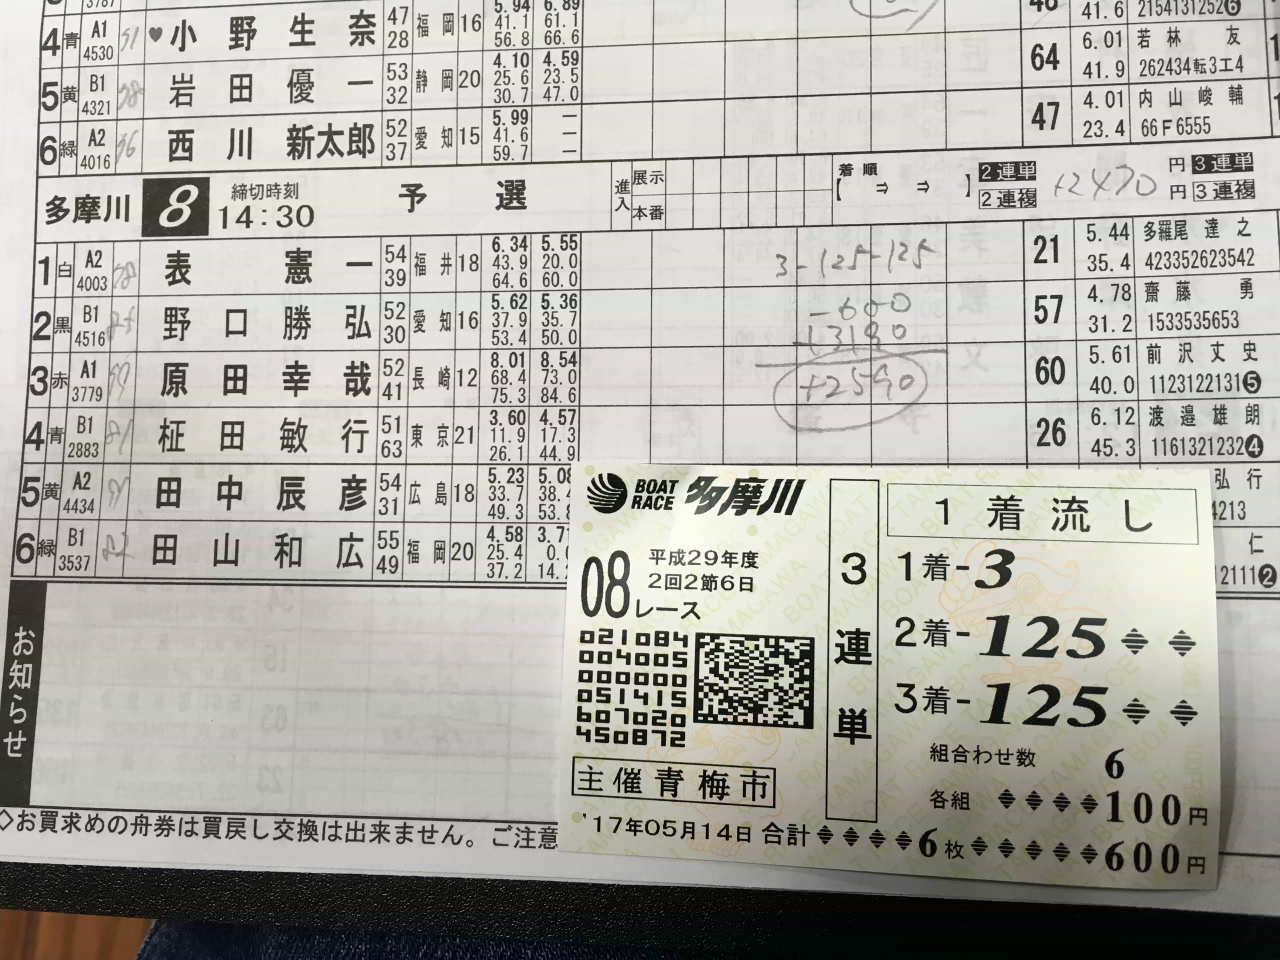 4 青 A1 4530 ♥小野生奈 47 28 福岡 16 5.94 41.1 56.8 6.89 61.1 66.6
41.6 2154131252❻
5 黄 B1 4321 岩田優一 53 32 静岡 20 4.10 25.6 30.7 4.59 23.5 47.0
64 6.01 41.9 若林友 262434転3エ4
6 緑 A2 4016 西川新太郎 52 37 愛知 15 5.99 41.6 59.7 — — —
47 4.01 23.4 内山峻輔 66F6555
多摩川 8 締切時刻 14:30 予選
進入 展示 本番
着順 【 ⇒ ⇒ 】
2連単 2連複 +2470 円 円 3連単 3連複
1 白 A2 4003 表憲一 54 39 福井 18 6.34 43.9 64.6 5.55 20.0 60.0
3-125-125
21 5.44 35.4 多羅尾達之 423352623542
2 黒 B1 4516 野口勝弘 52 30 愛知 16 5.62 37.9 53.4 5.36 35.7 50.0
-600
+3190
57 4.78 31.2 齋藤勇 1533535653
3 赤 A1 3779 原田幸哉 52 41 長崎 12 8.01 68.4 75.3 8.54 73.0 84.6
+2590
60 5.61 40.0 前沢丈史 1123122131❺
4 青 B1 2883 柾田敏行 51 63 東京 21 3.60 11.9 26.1 4.57 17.3 44.9
26 6.12 45.3 渡邉雄朗 1161321232❹
5 黄 A2 4434 田中辰彦 54 31 広島 18 5.23 33.7 49.3 5.08 38. 53.8
弘行 4213
6 緑 B1 3537 田山和広 55 49 福岡 20 4.58 25.4 37.2 3.7 0. 14.
仁 2111❷
お知らせ
◇お買求めの舟券は買戻し交換は出来ません。ご注意
BOAT RACE 多摩川
平成29年度
2回2節6日
08レース
021084
004005
000000
051415
607020
450872
主催青梅市
3連単
1着流し
1着-3
2着-125
3着-125
組合わせ数 6
各組 100円
'17年05月14日 合計 6枚 600円